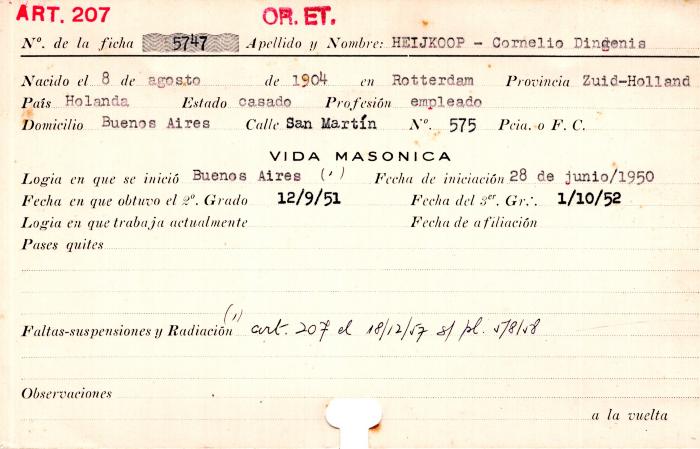 ART. 207 OR. ET.
Nº. de la ficha 5747 Apellido y Nombre: HEIJKOOP - Cornelio Dingenis
Nacido el 8 de agosto de 1904 en Rotterdam Provincia Zuid-Holland
País Holanda Estado casado Profesión empleado
Domicilio Buenos Aires Calle San Martín Nº. 575 Pcia. o F. C.
VIDA MASONICA
Logia en que se inició Buenos Aires (1) Fecha de iniciación 28 de junio/1950
Fecha en que obtuvo el 2º. Grado 12/9/51 Fecha del 3er. Gr∴ 1/10/52
Logia en que trabaja actualmente Fecha de afiliación
Pases quites
Faltas-suspensiones y Radiación (1) art. 207 el 18/12/57 s/ pl. 5/8/58
Observaciones
a la vuelta